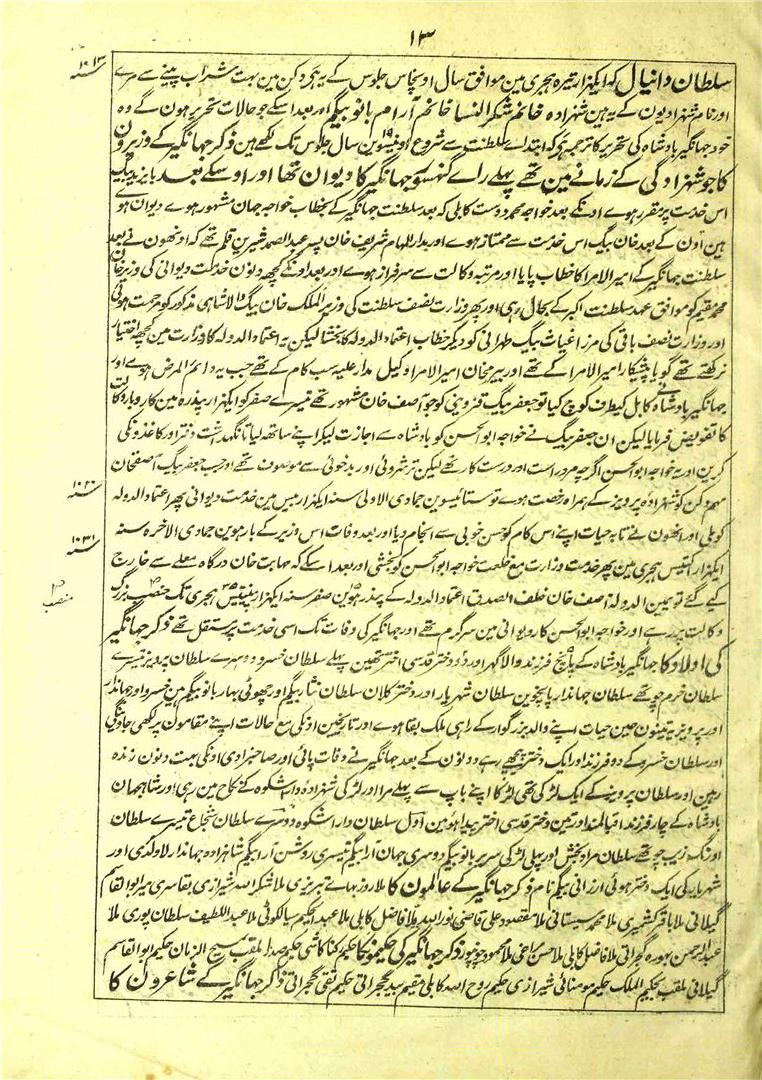 ۱۳
سلطان دانیال کہ ایکہزار تیرہ ہجری مین موافق سال اوپنچاس جلوس کے یہی دکن مین بہت شراب پینے سے مرے
سنہ ۱۰۱۳
اور نام شہزادیون کے یہ ہین شہزادہ خانم شکر النسا خانم آرام بانو بیگم اور بعد اسکے جو حالات تحریر ہون گے وہ
خود جہانگیر بادشاہ کی تحریر کا ترجمہ ہی کہ ابتداے سلطنت سے شروع اونیسوین سال جلوس تک لکھے ہین ذکر جہانگیر کے وزیرون
کا جو شہزادگی کے زمانے مین تھے پہلے راے گھنسور جہانگیر کا دیوان تھا اور اوسکے بعد بایزید بیگ
اس خدمت پر مقرر ہوے اونکے بعد خواجہ محمد دوست کابلی کہ بعد سلطنت جہانگیر کے بخطاب خواجہ جہان مشہور ہوے دیوان ہوے
ہین اون کے بعد خان بیگ اس خدمت سے ممتاز ہوے اور مدار المہام شریف خان پسر عبد الصمد شیرین قلم تھے کہ اونھون نے بعد
سلطنت جہانگیر کے امیر الامرا کا خطاب پایا اور مرتبہ وکالت سے سرفراز ہوے اور بعد اونکے کچھ دنون خدمت دیوانی کی وزیر خان
محمد مقیم کو موافق عہد سلطنت اکبر کے بحال رہی اور پھر وزارت نصف سلطنت کی وزیر الملک خان بیگ والا شاہی مذکور کو مرحمت ہوئی
اور وزارت نصف باقی کی مرزا غیاث بیگ طہرانی کو دیکر خطاب اعتماد الدولہ کا بخشا لیکن یہ اعتماد الدولہ کا وزارت مین کچھ اختیار
نرکھتے تھے گویا پیشکار امیر الامرا کے تھے اور سیر خان امیر الامرا وکیل مدار علیہ سب کام کے تھے جب یہ دائم المرض ہوے اور
جہانگیر بادشاہ نے کابل کیطرف کوچ کیا تو جعفر بیگ قزوینی کو جو آصف خان مشہور تھے تیسرے صفر کو ایکہزار پندرہ مین کاروبار وکالت
کا تفویض فرمایا لیکن ان جعفر بیگ نے خواجہ ابو الحسن کو بادشاہ سے اجازت لیکر اپنے ساتھ لیا تا نگہداشت دفتر اور کاغذ ونکی
کرین اور یہ خواجہ ابو الحسن اگرچہ مرد راست اور درست کار تھے لیکن ترشروئی اور بدخوئی سے موسوم تھے اور جب جعفر بیگ آصفخان
مہم دکن کو شہزادہ پرویز کے ہمراہ رخصت ہوے تو ستائیسوین جمادی الاولی سنہ ایکہزار بیس مین خدمت دیوانی پھر اعتماد الدولہ
سنہ ۱۰۲۰
کو ملی اور انھون نے تا بہ حیات اپنے اس کام کو حسن خوبی سے انجام دیا اور بعد وفات اس وزیر کے بارہوین جمادی الآخرہ سنہ
ایکہزار اکتیس ہجری مین پھر خدمت وزارت مع خلعت خواجہ ابو الحسن کو بخشی اور بعد اسکے کہ مہابت خان درگاہ معلے سے خارج
سنہ ۱۰۳۱
کیے گئے تو یمین الدولہ آصف خان خلف الصدق اعتماد الدولہ کے پندرہوین صفر سنہ ایکہزار پینتیس ہجری تک منصب بزرگ
منصب
وکالت پر رہے اور خواجہ ابو الحسن کار دیوانی مین سرگرم تھے اور جہانگیر کی وفات تک اسی خدمت پر مستقل تھے ذکر جہانگیر
کی اولاد کا جہانگیر بادشاہ کے پانچ فرزند والا گہر اور دو دختر قدسی اختر تھین پہلے سلطان خسرو دوسرے سلطان پرویز تیسرے
سلطان خرم چوتھے سلطان جہاندار پانچوین سلطان شہریار اور دختر کلان سلطان نثار بیگم اور چھوٹی بہار بانو بیگم ہین خسرو اور جہاندار
اور پرویز یہ تینون حین حیات اپنے والد بزرگوار کے راہی ملک بقا ہوے اور تاریخین اونکی مع حالات اپنے مقامون پر لکھی جاوینگی
اور سلطان خسرو کے دو فرزند اور ایک دختر پیچھے رہے دونون کے بعد جہانگیر نے وفات پائی اور صاحبزادی اونکی بہت دنون زندہ
رہین اور سلطان پرویز کے ایک لڑکی تھی لڑکا اپنے باپ سے پہلے مرا اور لڑکی شہزادہ دارا شکوہ کے نکاح مین رہی اور شاہجہان
بادشاہ کے چار فرزند اقبالمند اور تین دختر قدسی اختر پیدا ہوئین اول سلطان دارا شکوہ دوسرے سلطان شجاع تیسرے سلطان
اورنگ زیب چوتھے سلطان مراد بخش اور پہلی لڑکی سریر بانو بیگم دوسری جہان آرا بیگم تیسری روشن آرا بیگم شاہزادہ جہاندار لاولدی اور
شہریار کی ایک دختر ہوئی ارزانی بیگم نام ذکر جہانگیر کے عالمون کا ملا روزبہاے تبریزی ملا شکر اللہ شیرازی بقا سری میر ابو القاسم
گیلانی ملا باقر کشمیری ملا محمد سیستانی ملا مقصود علی قاضی نور اللہ ملا فاضل کابلی ملا عبد الحکیم سیالکوٹی ملا عبد اللطیف سلطان پوری ملا
عبد الرحمن بوہرہ گجراتی ملا فاضل کابلی ملا حسن مراغی ملا محمود جونپور ذکر جہانگیر کے حکیمونکا حکیم رکنا کاشی حکیم صدرا ملقب مسیح الزمان حکیم ابو القاسم
گیلانی ملقب بحکیم الملک حکیم مومنائی شیرازی حکیم روح اللہ کابلی مقیم سید گجراتی حکیم تقی گجراتی ذکر جہانگیر کے شاعرون کا